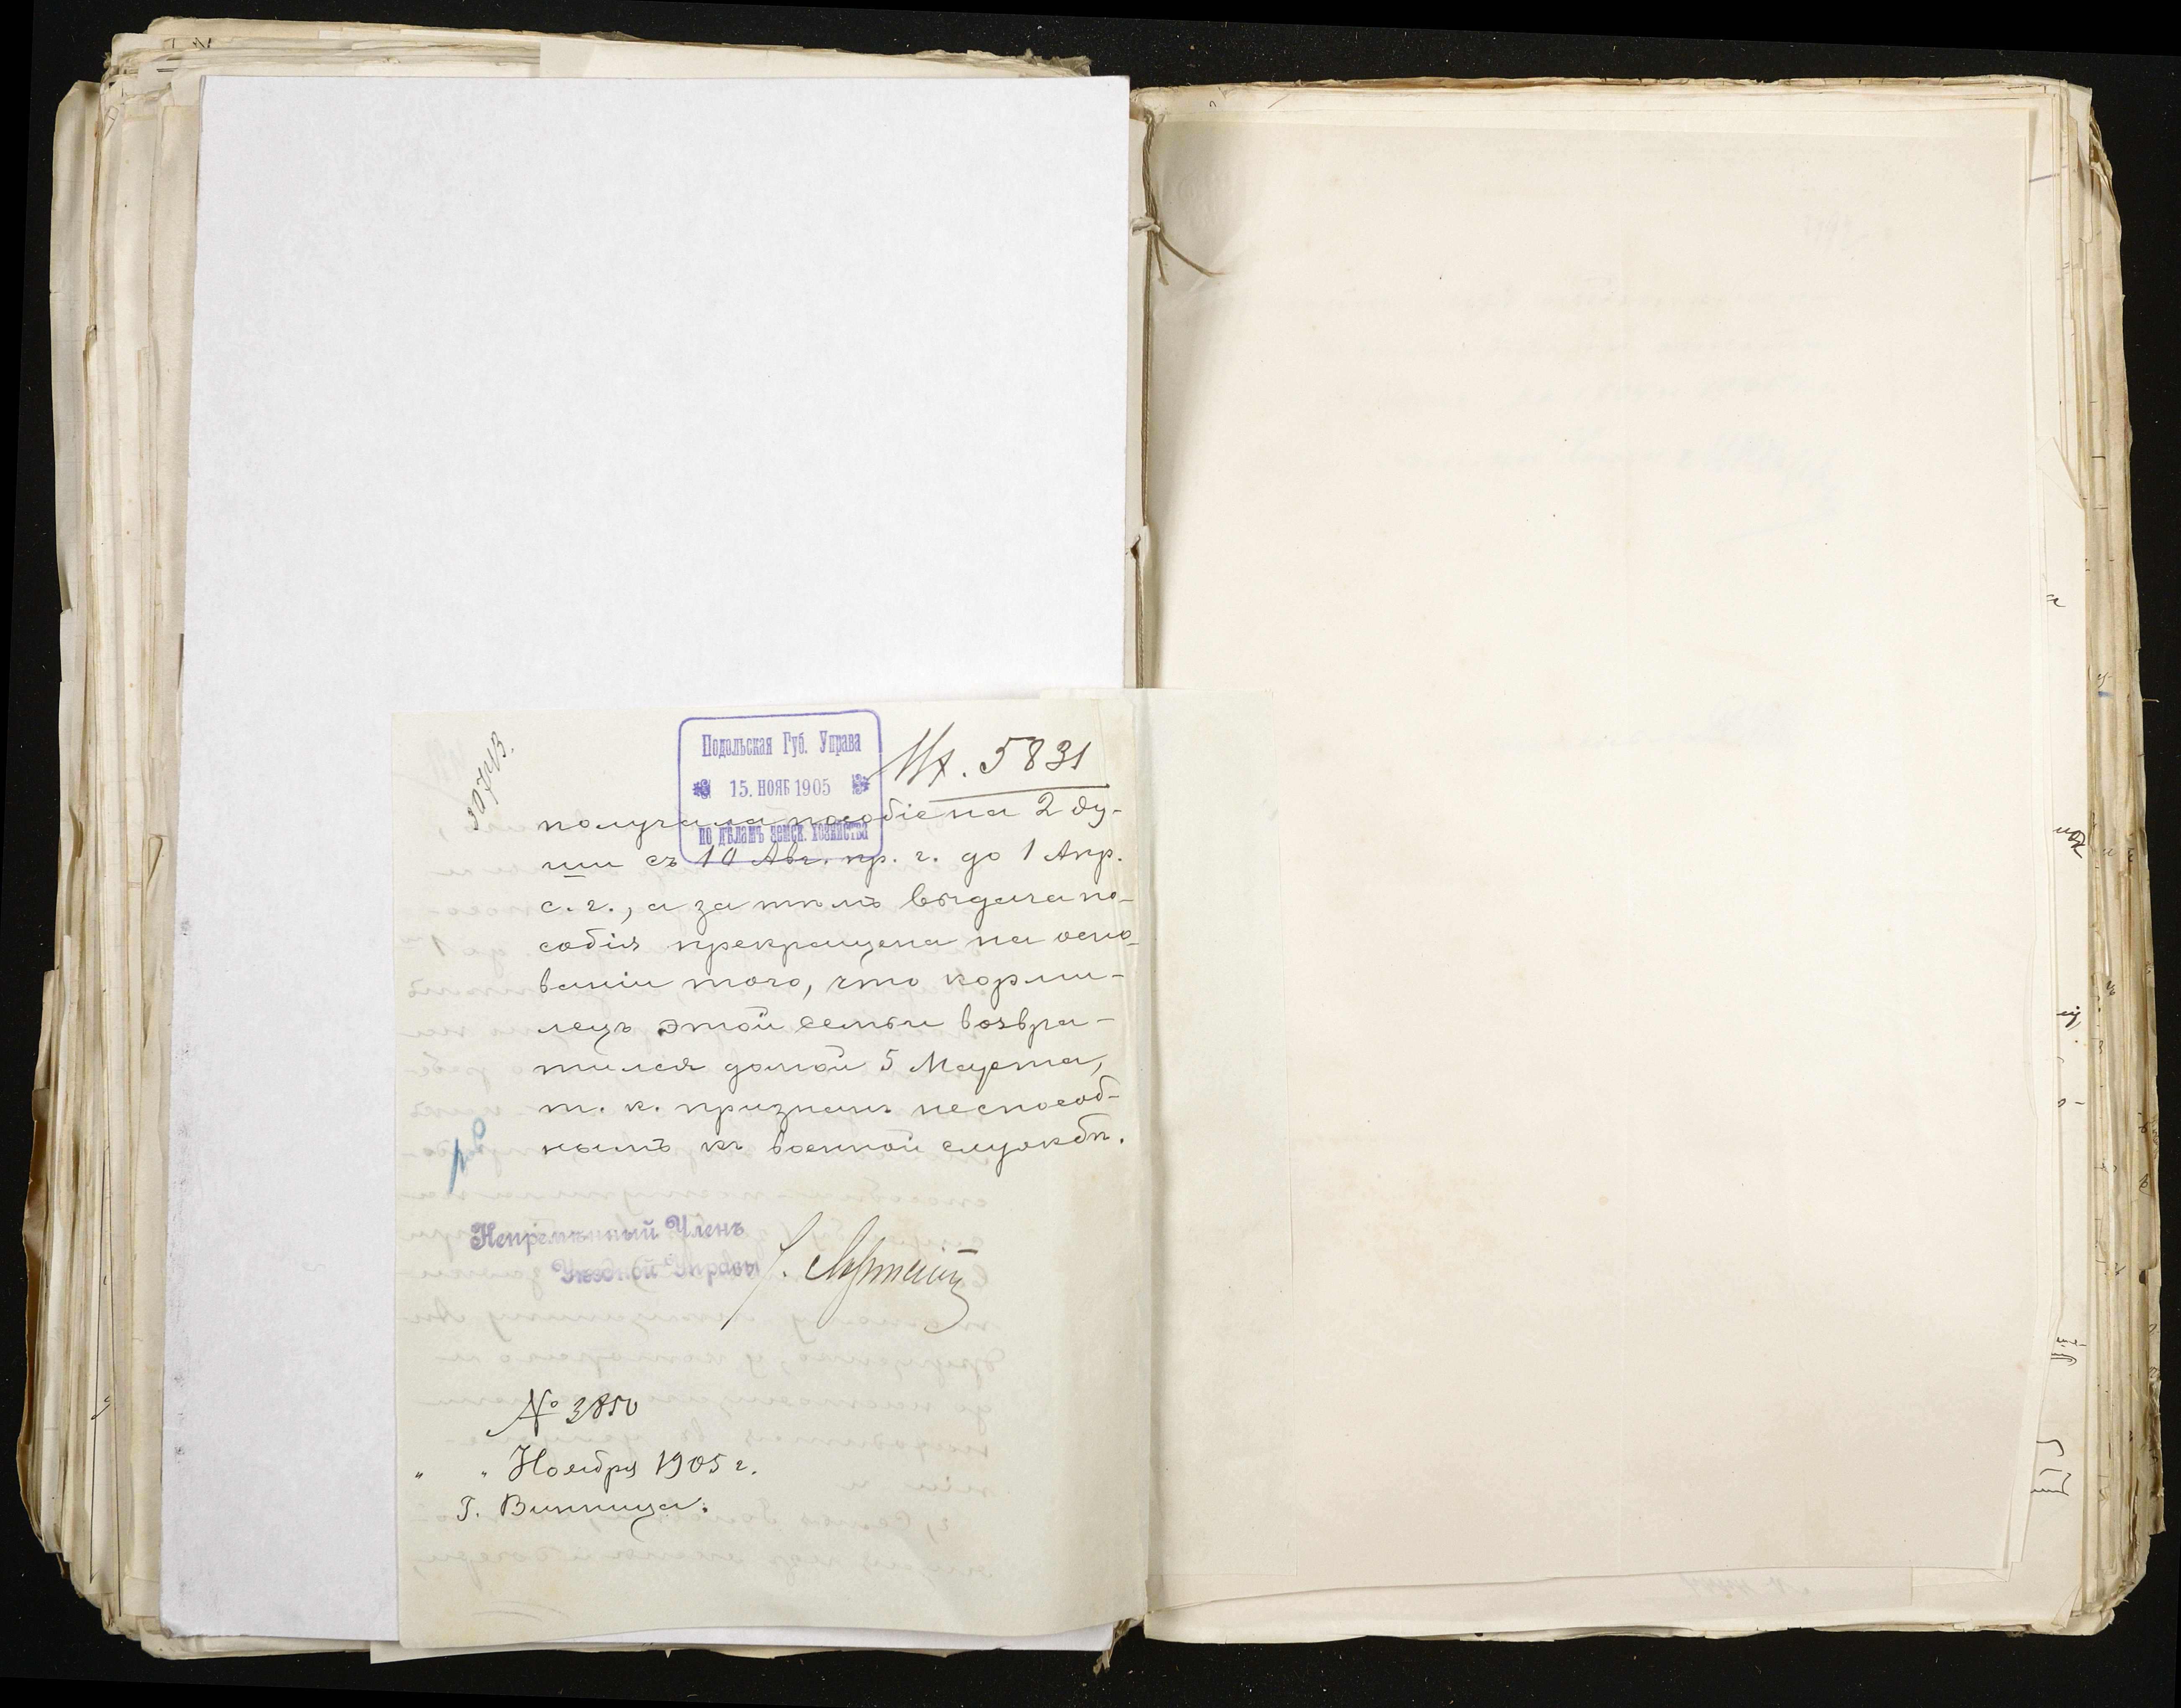 30743.
Подольская Губ. Управа
15. НОЯБ 1905
по дѣламъ земск. хозяйства
М. 5831
получала пособіе на 2 ду-
ши съ 10 Авг. пр. г. до 1 Апр.
с. г., а затѣмъ выдача по-
собія прекращена на осно-
ваніи того, что корми-
лецъ этой семьи возвра-
тился домой 5 Марта,
т. к. признанъ неспособ-
нымъ къ военной службѣ.
Непремѣнный Членъ
Уѣздной Управы
№ 3850
" " Ноября 1905 г.
Г. Винница.